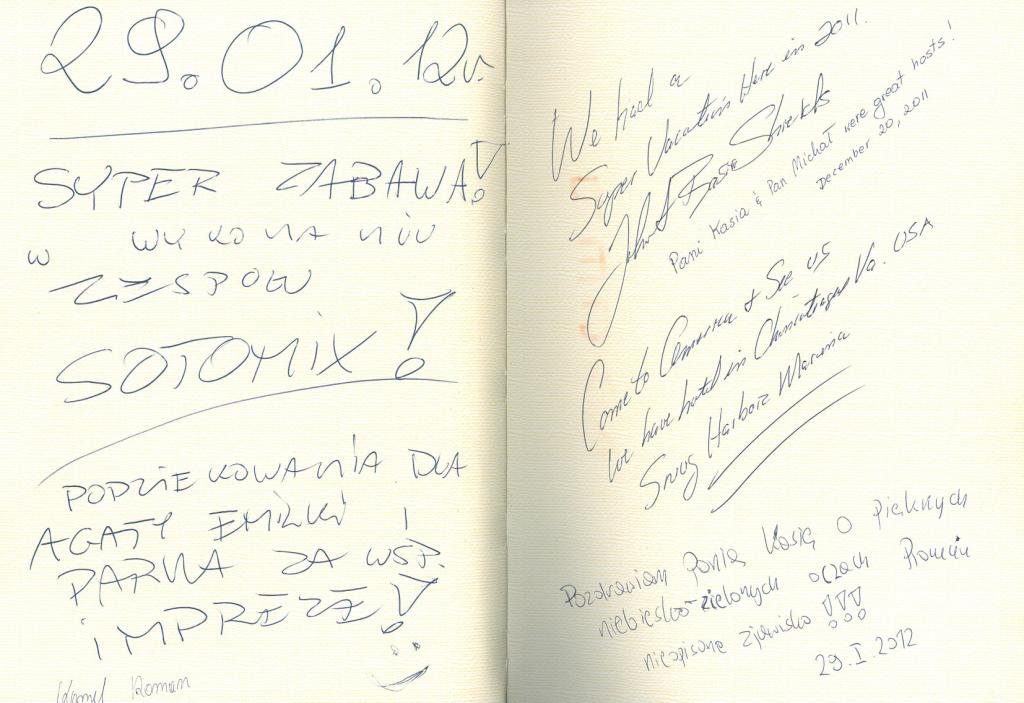 29.01.12r.
SYPER ZABAWA!
w WYKONANIU
ZESPOŁU
SOTOMIX!
PODZIEKOWANIA DLA
AGATY EMILKI i
PARNA ZA WSP.
iMPREZE!
Kamil Roman
We had a
Super Vacation Here in 2011.
John & Basia
Pani Kasia & Pan Michał were great hosts!
December 20, 2011
Come to America & See us
We have hotel in Chincoteague Va. USA
Snug Harbor Marina
Pozdrawiam Panią Kasię o pięknych
niebiesko-zielonych oczach
nieopisane zjawisko !!!
29.I.2012